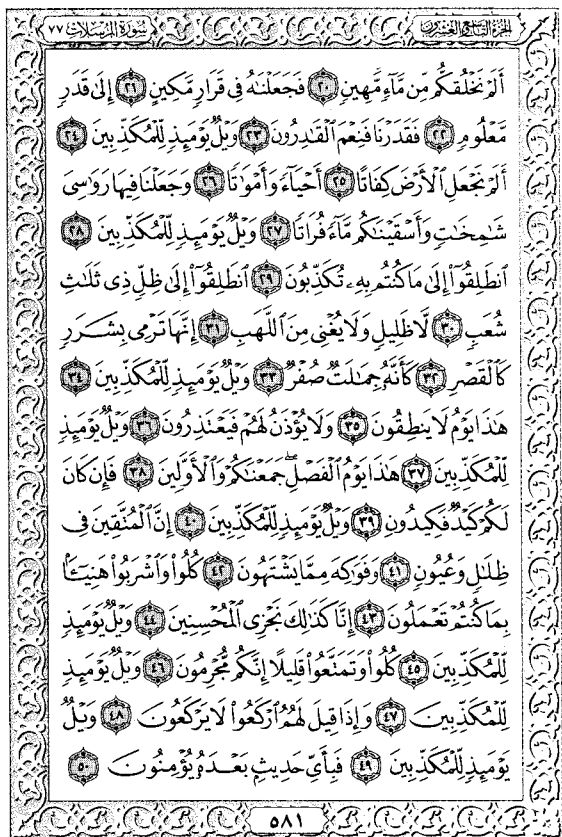 الجزء التاسع والعشرون
سورة المرسلات ٧٧
أَلَمْ نَخْلُقكُّم مِّن مَّآءٍ مَّهِينٍ ٢٠ فَجَعَلْنَٰهُ فِى قَرَارٍ مَّكِينٍ ٢١ إِلَىٰ قَدَرٍ
مَّعْلُومٍ ٢٢ فَقَدَرْنَا فَنِعْمَ ٱلْقَٰدِرُونَ ٢٣ وَيْلٌ يَوْمَئِذٍ لِّلْمُكَذِّبِينَ ٢٤
أَلَمْ نَجْعَلِ ٱلْأَرْضَ كِفَاتًا ٢٥ أَحْيَآءً وَأَمْوَٰتًا ٢٦ وَجَعَلْنَا فِيهَا رَوَٰسِىَ
شَٰمِخَٰتٍ وَأَسْقَيْنَٰكُم مَّآءً فُرَاتًا ٢٧ وَيْلٌ يَوْمَئِذٍ لِّلْمُكَذِّبِينَ ٢٨
ٱنطَلِقُوٓا۟ إِلَىٰ مَا كُنتُم بِهِۦ تُكَذِّبُونَ ٢٩ ٱنطَلِقُوٓا۟ إِلَىٰ ظِلٍّ ذِى ثَلَٰثِ
شُعَبٍ ٣٠ لَّا ظَلِيلٍ وَلَا يُغْنِى مِنَ ٱللَّهَبِ ٣١ إِنَّهَا تَرْمِى بِشَرَرٍ
كَٱلْقَصْرِ ٣٢ كَأَنَّهُۥ جِمَٰلَتٌ صُفْرٌ ٣٣ وَيْلٌ يَوْمَئِذٍ لِّلْمُكَذِّبِينَ ٣٤
هَٰذَا يَوْمُ لَا يَنطِقُونَ ٣٥ وَلَا يُؤْذَنُ لَهُمْ فَيَعْتَذِرُونَ ٣٦ وَيْلٌ يَوْمَئِذٍ
لِّلْمُكَذِّبِينَ ٣٧ هَٰذَا يَوْمُ ٱلْفَصْلِ ۖ جَمَعْنَٰكُمْ وَٱلْأَوَّلِينَ ٣٨ فَإِن كَانَ
لَكُمْ كَيْدٌ فَكِيدُونِ ٣٩ وَيْلٌ يَوْمَئِذٍ لِّلْمُكَذِّبِينَ ٤٠ إِنَّ ٱلْمُتَّقِينَ فِى
ظِلَٰلٍ وَعُيُونٍ ٤١ وَفَوَٰكِهَ مِمَّا يَشْتَهُونَ ٤٢ كُلُوا۟ وَٱشْرَبُوا۟ هَنِيٓـًٔۢا
بِمَا كُنتُمْ تَعْمَلُونَ ٤٣ إِنَّا كَذَٰلِكَ نَجْزِى ٱلْمُحْسِنِينَ ٤٤ وَيْلٌ يَوْمَئِذٍ
لِّلْمُكَذِّبِينَ ٤٥ كُلُوا۟ وَتَمَتَّعُوا۟ قَلِيلًا إِنَّكُم مُّجْرِمُونَ ٤٦ وَيْلٌ يَوْمَئِذٍ
لِّلْمُكَذِّبِينَ ٤٧ وَإِذَا قِيلَ لَهُمُ ٱرْكَعُوا۟ لَا يَرْكَعُونَ ٤٨ وَيْلٌ
يَوْمَئِذٍ لِّلْمُكَذِّبِينَ ٤٩ فَبِأَىِّ حَدِيثٍۭ بَعْدَهُۥ يُؤْمِنُونَ ٥٠
٥٨١